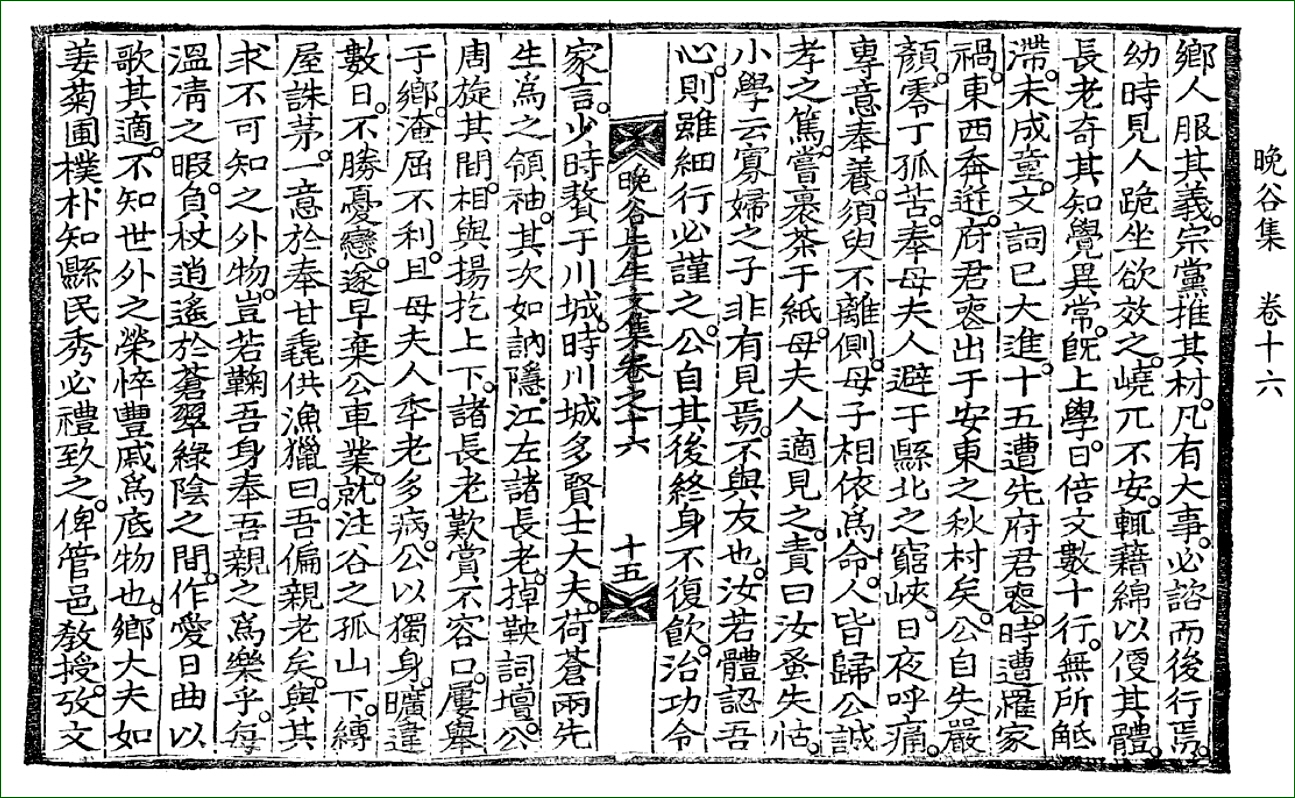 晚谷集 卷十六
鄉人服其義。宗黨推其材。凡有大事。必諮而後行焉。
幼時見人跪坐欲效之。嶢兀不安。輒藉綿以便其體。
長老奇其知覺異常。旣上學。日倍文數十行。無所觝
滯。未成童。文詞已大進。十五遭先府君喪。時遭羅家
禍。東西奔迸。府君喪出于安東之秋村矣。公自失嚴
顏。零丁孤苦。奉母夫人避于縣北之窮峽。日夜呼痛。
專意奉養。須臾不離側。母子相依爲命。人皆歸公誠
孝之篤。嘗裹茶于紙。母夫人適見之。責曰汝蚤失怙。
小學云寡婦之子非有見焉。不與友也。汝若體認吾
心。則雖細行必謹之。公自其後終身不復飮。治功令
晚谷先生文集卷之十六 十五
家言。少時贅于川城。時川城多賢士大夫。荷蒼兩先
生爲之領袖。其次如訥隱江左諸長老。掉鞅詞壇。公
周旋其間。相與揚扢上下。諸長老歎賞不容口。屢擧
于鄕。淹屈不利。且母夫人年老多病。公以獨身。曠違
數日。不勝憂戀。遂早棄公車業。就注谷之孤山下。縛
屋誅茅。一意於奉甘毳供漁獵曰。吾偏親老矣。與其
求不可知之外物。豈若鞠吾身奉吾親之爲樂乎。每
溫凊之暇。負杖逍遙於蒼翠綠陰之間。作愛日曲以
歌其適。不知世外之榮悴豐戚爲底物也。鄕大夫如
姜菊圃樸朴知縣民秀必禮致之。俾管邑敎授。攷文